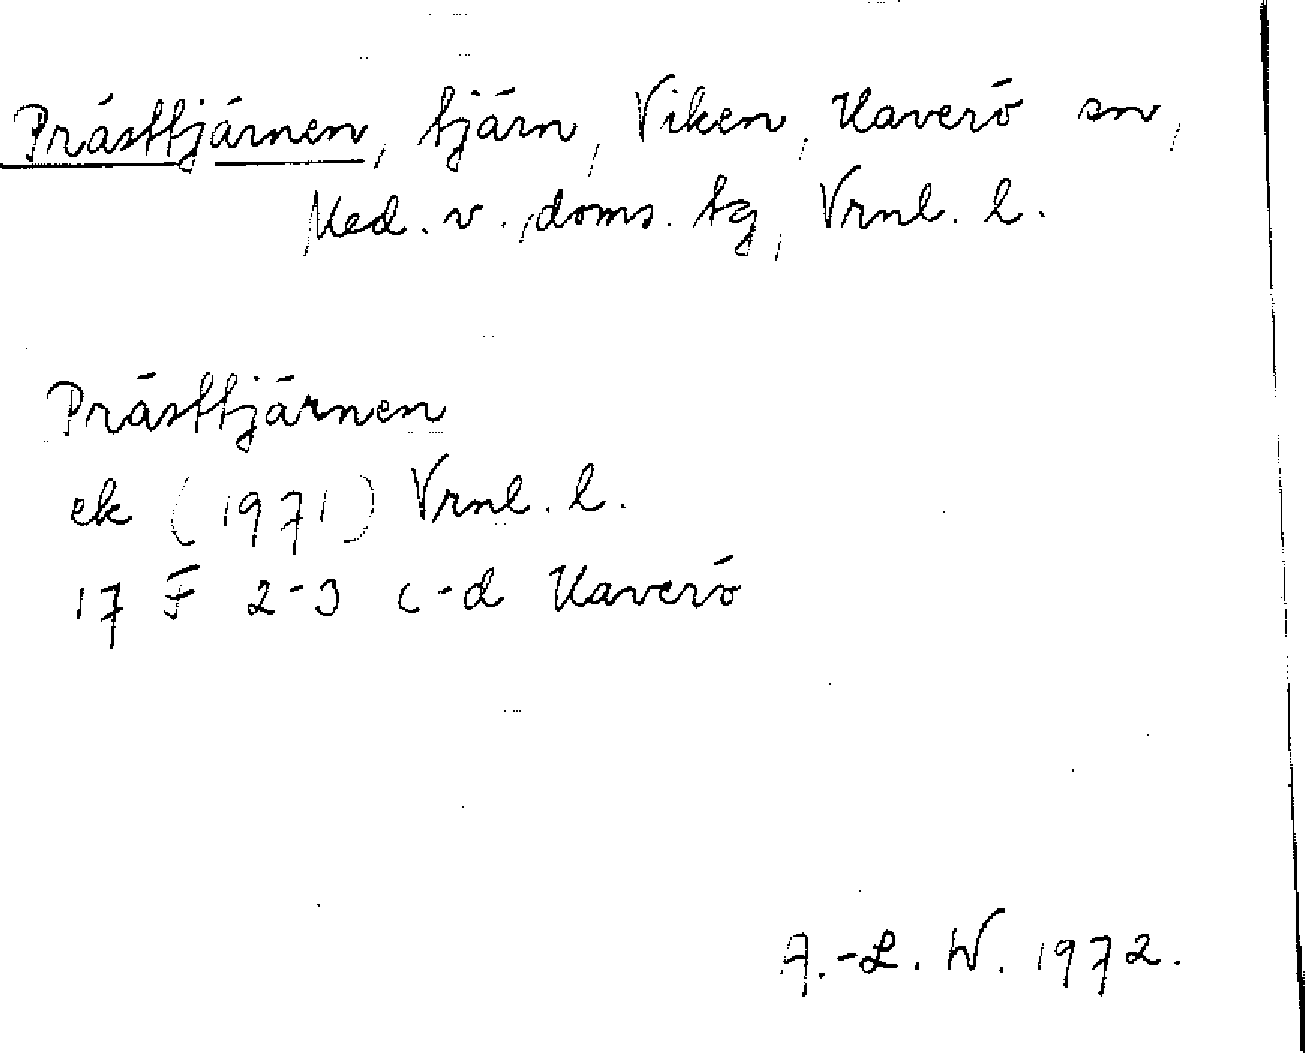 Prästtjärnen, tjärn, Viken, Haverö sn,
Med. v. doms. tg, Vrnl. l.
Prästtjärnen
ek (1971) Vrnl. l.
17 F 2-3 c-d Haverö
A.-L. W. 1972.